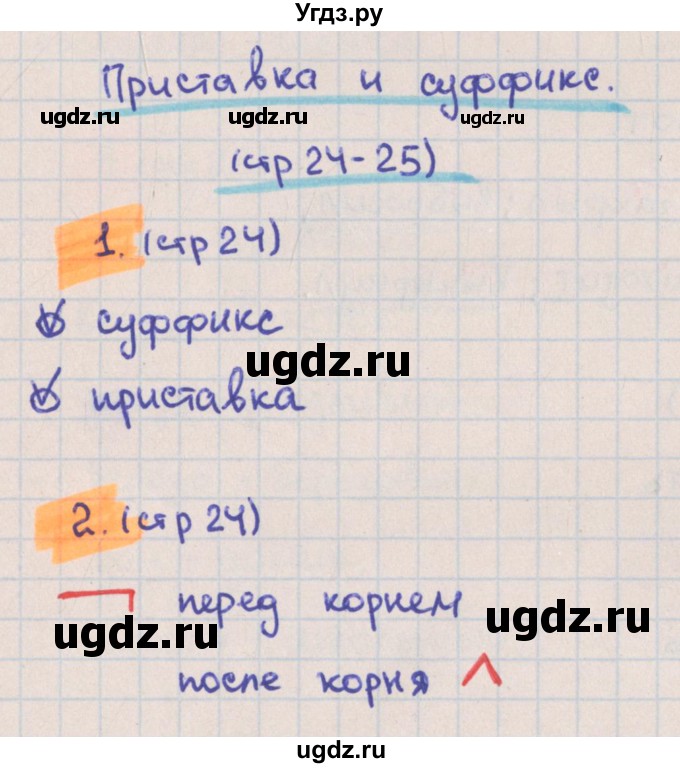 Угдз.ру
Приставка и суффикс.
ugdz.ru ugdz.ru ugdz.ru
(стр 24-25)
1. (стр 24)
суффикс
ugdz.ru
приставка
2. (стр 24)
перед корнем
ugdz.ru ugdz.ru
после корня
ugdz.ru